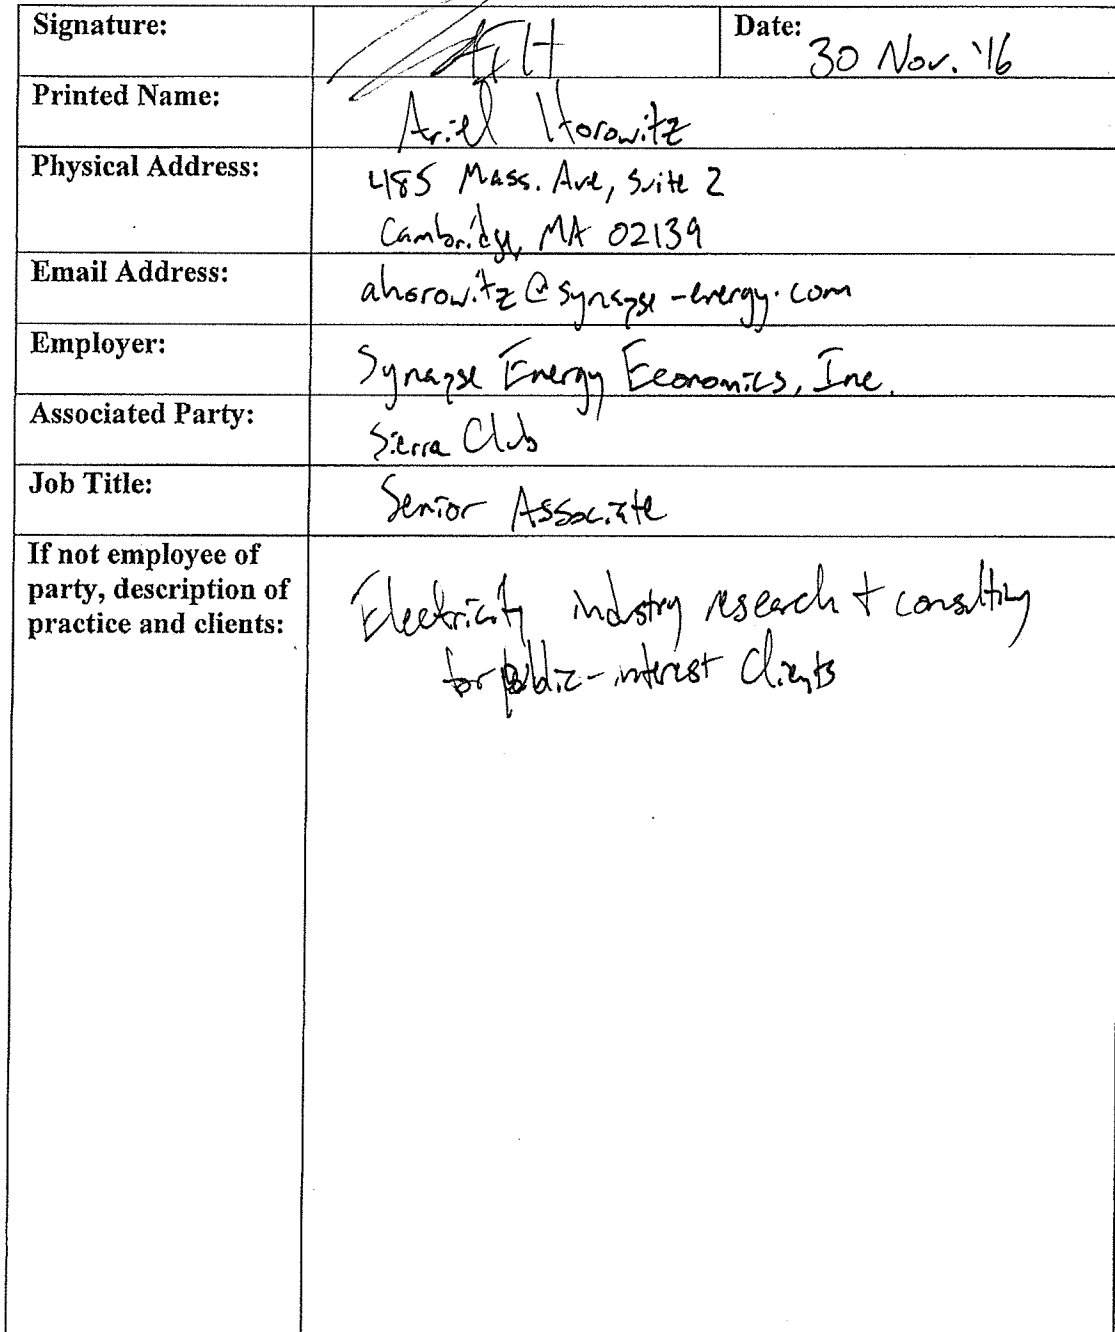 Signature:
Date:
30 Nov. '16
Printed Name:
Ariel Horowitz
Physical Address:
485 Mass. Ave, Suite 2
Cambridge, MA 02139
Email Address:
ahorowitz@synapse-energy.com
Employer:
Synapse Energy Economics, Inc.
Associated Party:
Sierra Club
Job Title:
Senior Associate
If not employee of
party, description of
practice and clients:
Electricity industry research + consulting
for public-interest clients